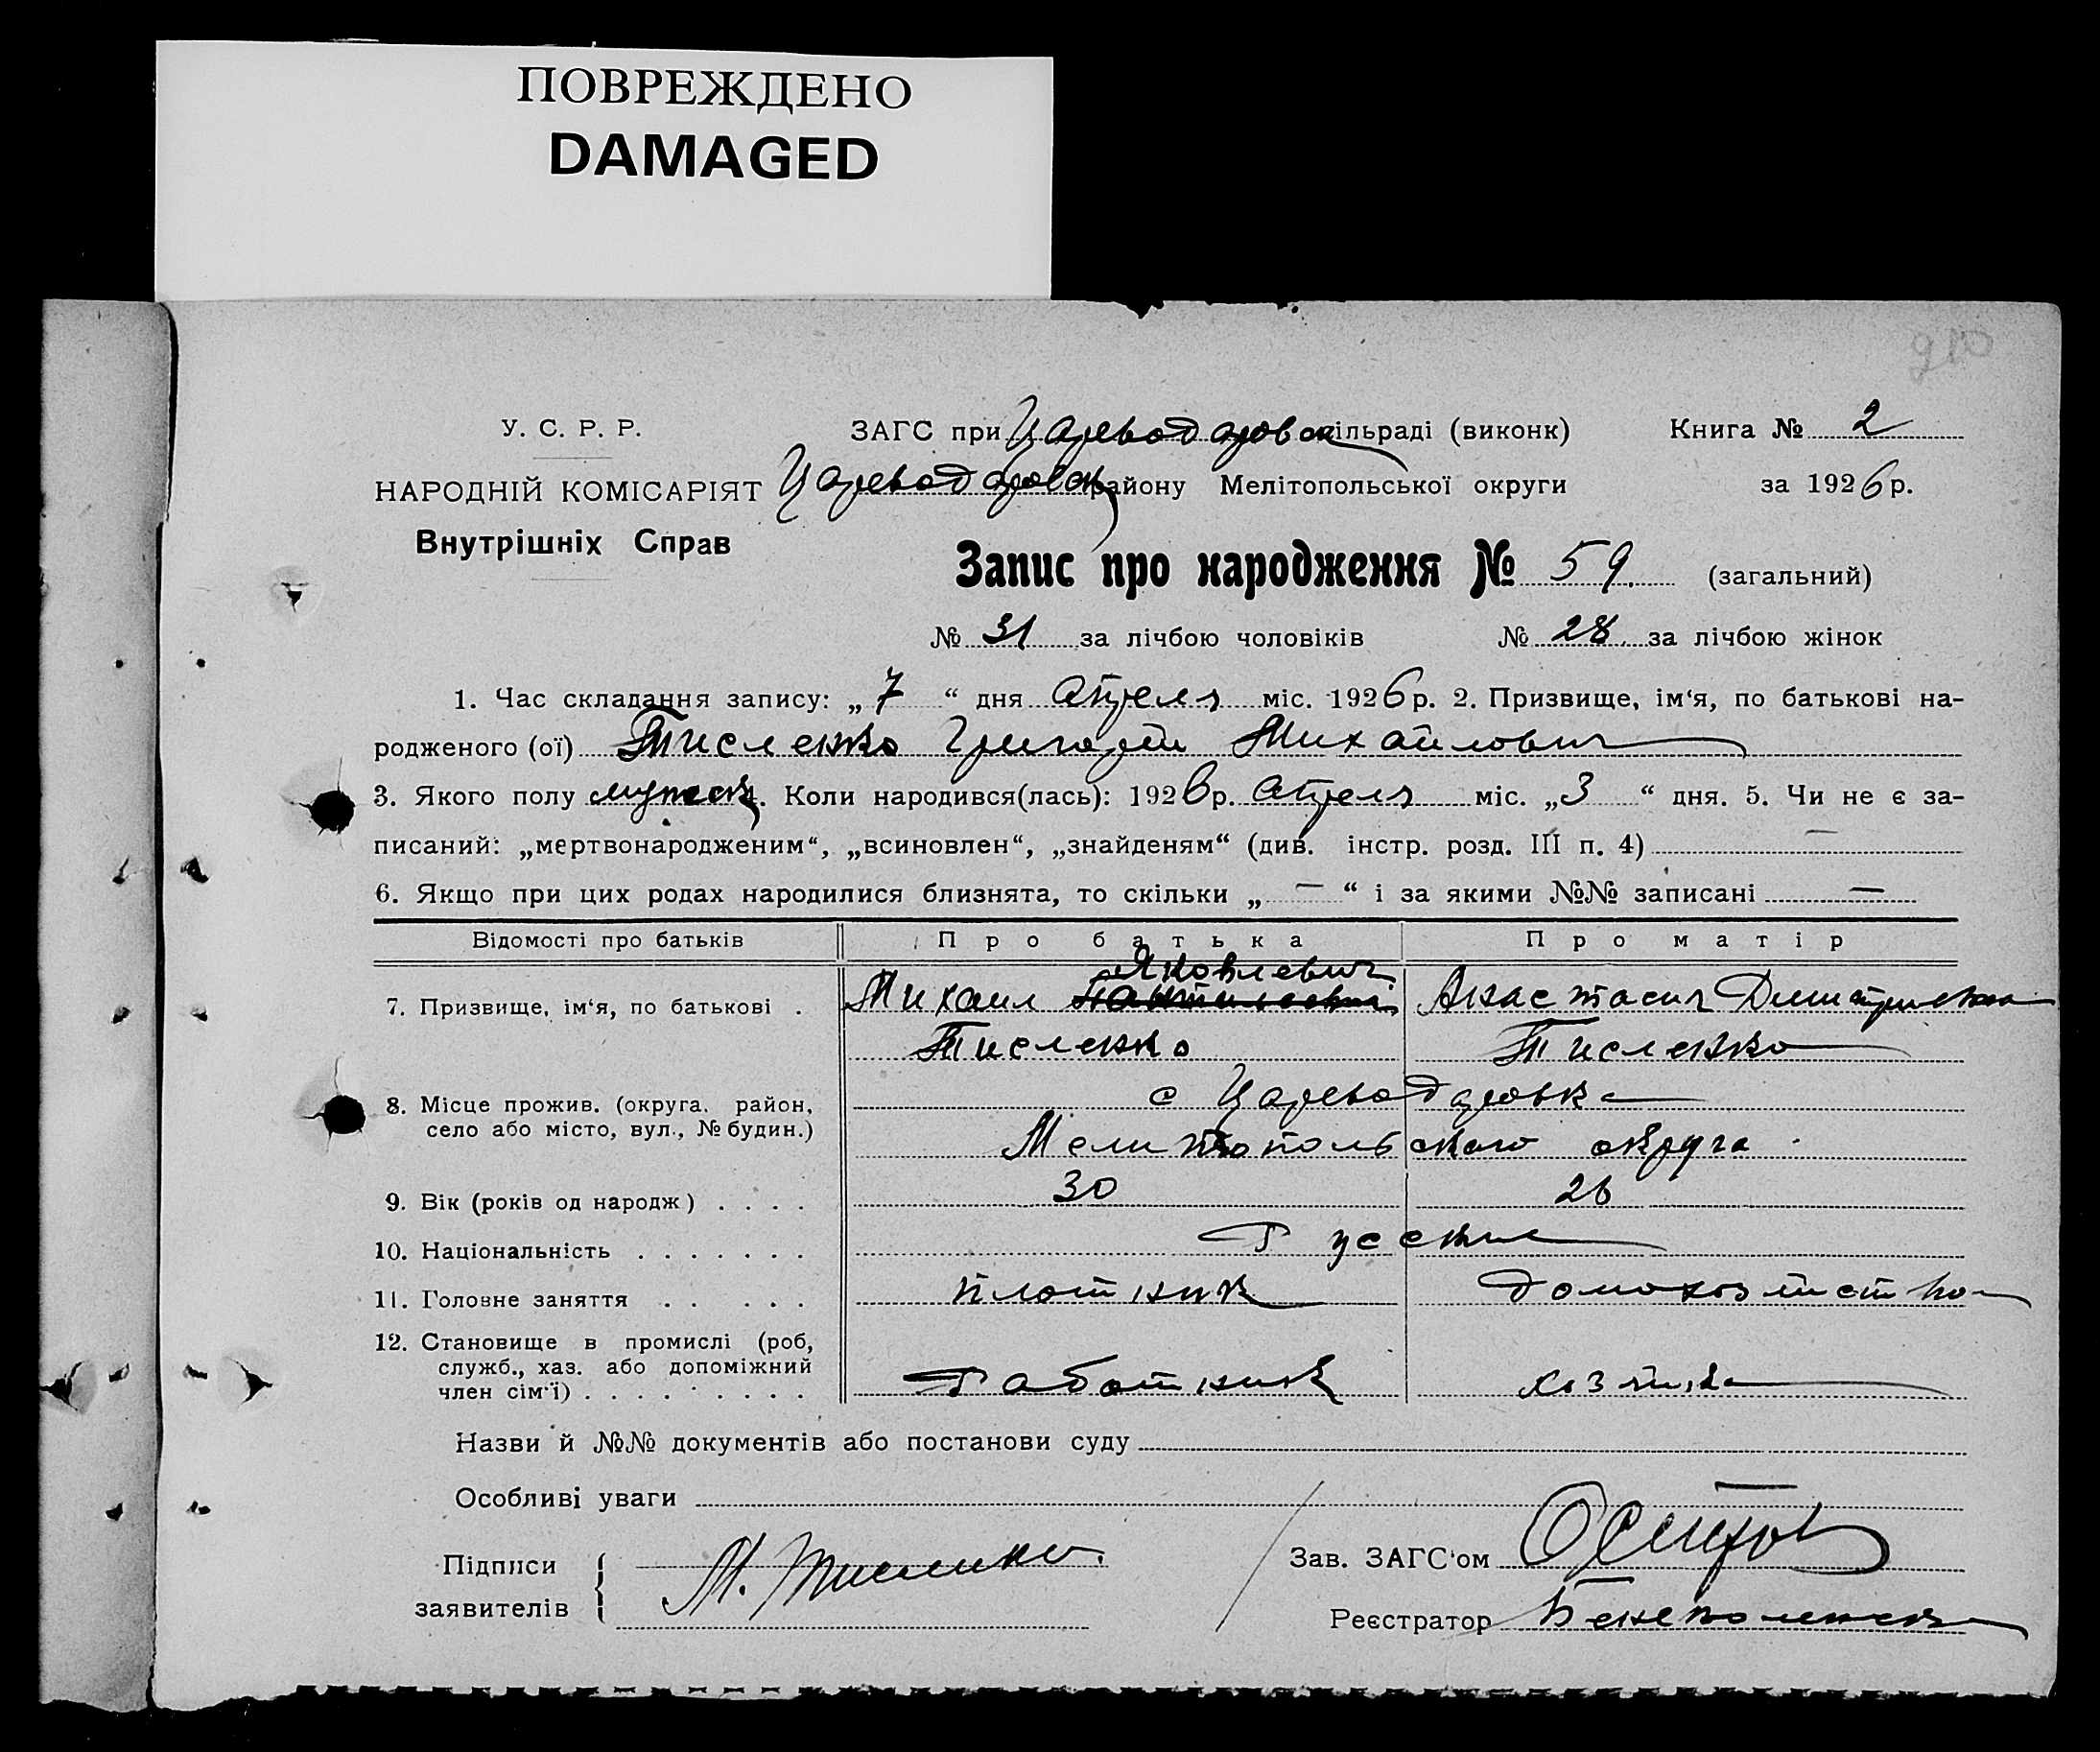 ПОВРЕЖДЕНО
DAMAGED
910
У. С. Р. Р.
ЗАГС при Цареводаровск сільраді (виконк)
Книга № 2
НАРОДНІЙ КОМІСАРІЯТ
Цареводаровск району Мелітопольської округи
за 1926 р.
Внутрішніх Справ
Запис про народження № 59. (загальний)
№ 31 за лічбою чоловіків № 28 за лічбою жінок
1. Час складання запису: „7“ дня апреля міс. 1926 р. 2. Призвище, ім‘я, по батькові на-
родженого (ої) Тисленко Григорий Михайлович
3. Якого полу мужск 4. Коли народився(лась): 1926 р. апреля міс. „3“ дня. 5. Чи не є за-
писаний: „мертвонародженим“, „всиновлен“, „знайденям“ (див. інстр. розд. III п. 4) —
6. Якщо при цих родах народилися близнята, то скільки „ — “ і за якими №№ записані —
Відомості про батьків Про батька Про матір
Яковлевич
7. Призвище, ім‘я, по батькові . Михаил Анастасия Дмитриевна
Тисленко Тисленко
8. Місце прожив. (округа, район, с Цареводаровка
село або місто, вул., № будин.)
Мелитопольского округа
9. Вік (років од народж) . . . . 30 26
10. Національність . . . . . . . Русские
11. Головне заняття . . . . . плотник домохозяйство
12. Становище в промислі (роб,
служб., хаз. або допоміжний
член сім‘ї) . . . . . . . . . Работник хозяйка
Назви й №№ документів або постанови суду
Особливі уваги
Підписи
заявителів
М. Тисленко.
Зав. ЗАГС‘ом Осипов
Реєстратор